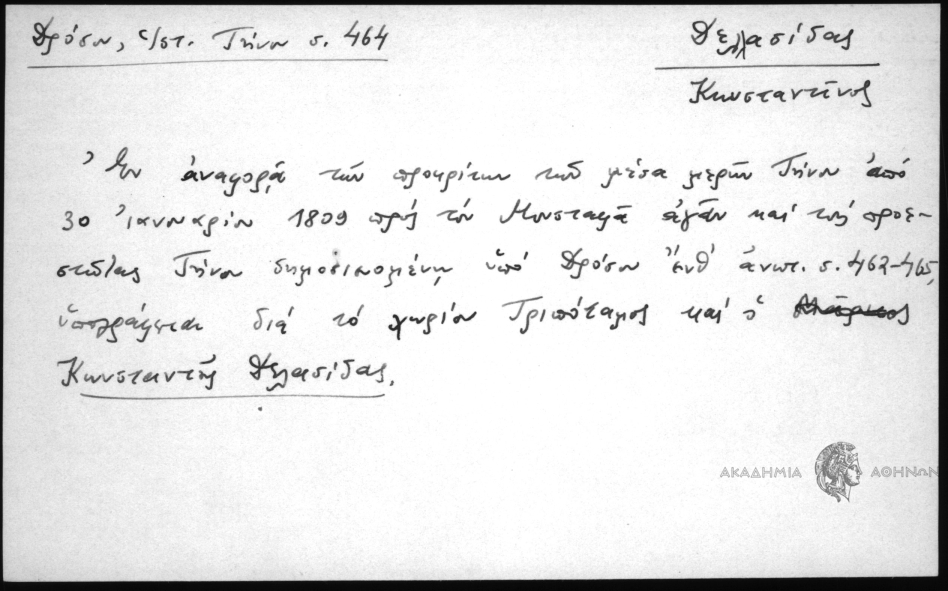 Δρόσου, ἱστ. Τήνου σ. 464
Δελλασίδας
Κωνσταντῖνος
Ἐν ἀναφορᾷ τῶν προκρίτων τῶν μέσα μερῶν Τήνου ἀπό
30 Ἰανουαρίου 1809 πρός τόν Μουσταφᾶ ἀγᾶν καί τούς προε-
στῶτας Τήνου δημοσιευομένῃ ὑπό Δρόσου ἔνθ' ἀνωτ. σ. 462-465,
ὑπογράφεται διά τό χωρίον Τριπόταμος καί ὁ
Κωνσταντῆς Δελασίδας.
ΑΚΑΔΗΜΙΑ ΑΘΗΝΩΝ